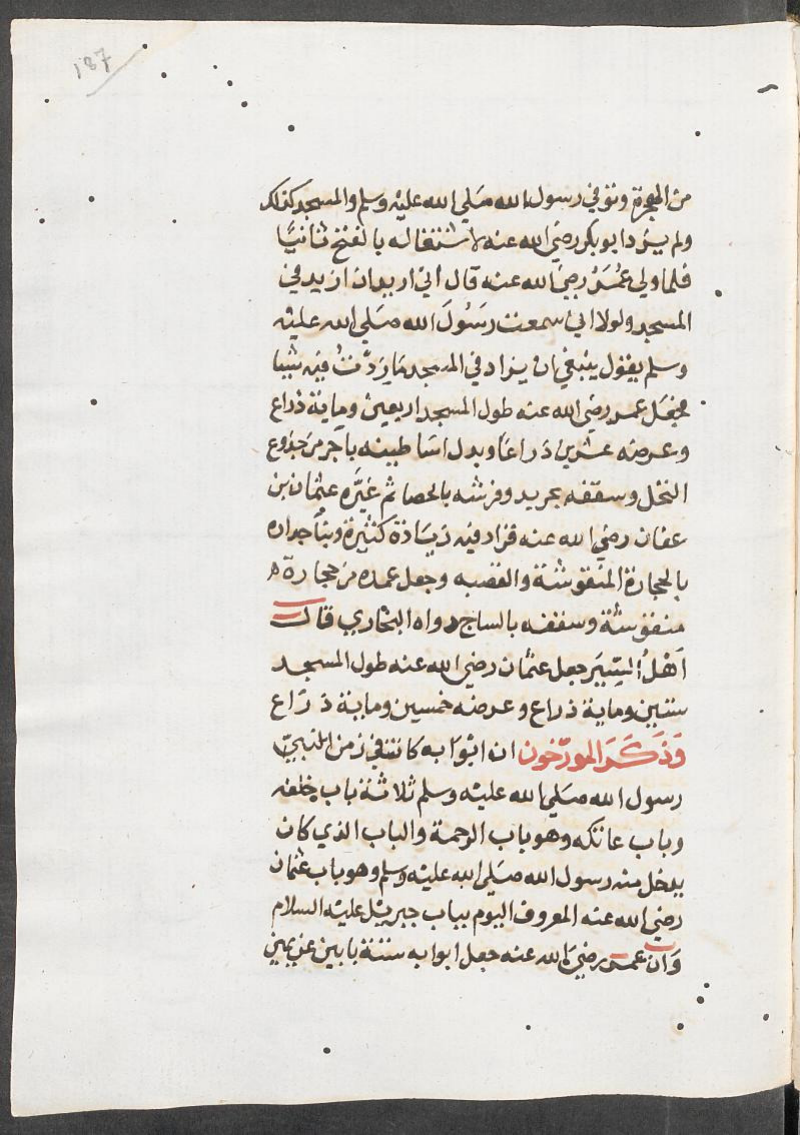 187
من الهجرة وتوفي رسول الله صَلي الله عليه وسلم والمسجد كذلك
ولم يزد ابو بكر رضيَ الله عنه لاشتغاله بالفتح ثانيًّا
فلما ولي عُمَرُ رضيَ الله عنه قال اني اريد ان ازيد في
المسجد ولولا اني سمعت رَسُولَ الله صَلي الله عليه
وسلم يقول ينبغي ان يزاد في المسجد مَا زدْتُ فيه شيا
فجعَل عمر رضي الله عنه طول المسجد اربعين وماية ذراع
وعرضه عشرين ذراعًا وبدل اسَاطينه باخر من جذوع
النخل وسقفه بجريد وفرشه بالحصا ثم غيَّره عثمان بن
عفان رضي الله عنه فزاد فيه زيَادة كثيرة وبنا جداره
بالحجارة المنقوشة والقصبه وجعل عمده من حجارة
منقوشة وسقفه بالساج رواه البخاري قال
اَهْلُ السّيَر جعل عثمان رضي الله عنه طول المسجد
ستين وماية ذراع وعرضه خمسين وماية ذرَاع
وَذكَرَ المورّخون ان ابوَابه كانت في زمن النبي
رسول الله صَلي الله عليه وسلم ثلاثة باب خلفه
وباب عاتكه وهو باب الرحمة والباب الذي كان
يدخل منه رسول الله صَلي الله عليه وسلم وهو باب عثمان
رضي الله عنه المعروف اليوم بباب جبريل عليه السلام
وَان عمر رضيَ الله عنه جعل ابوابه ستة بابين عن يمين